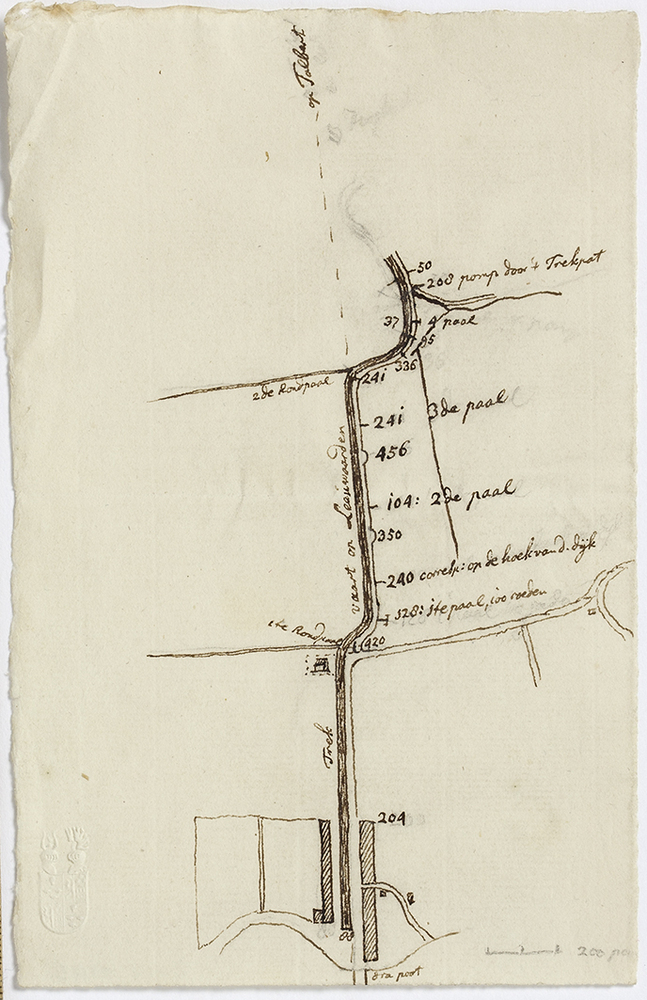 op Talbert
50
208 pomp door 't Trekpat
37
4 paal
95
336
241
2de Rondpaal
241
3de paal
456
104: 2de paal
350
240 correkt: op de hoek van d. dijk
528: 1te paal, 100 roeden
1te Rondpaal
420
Trek vaart op Leeuwaarden
204
88
poort
200